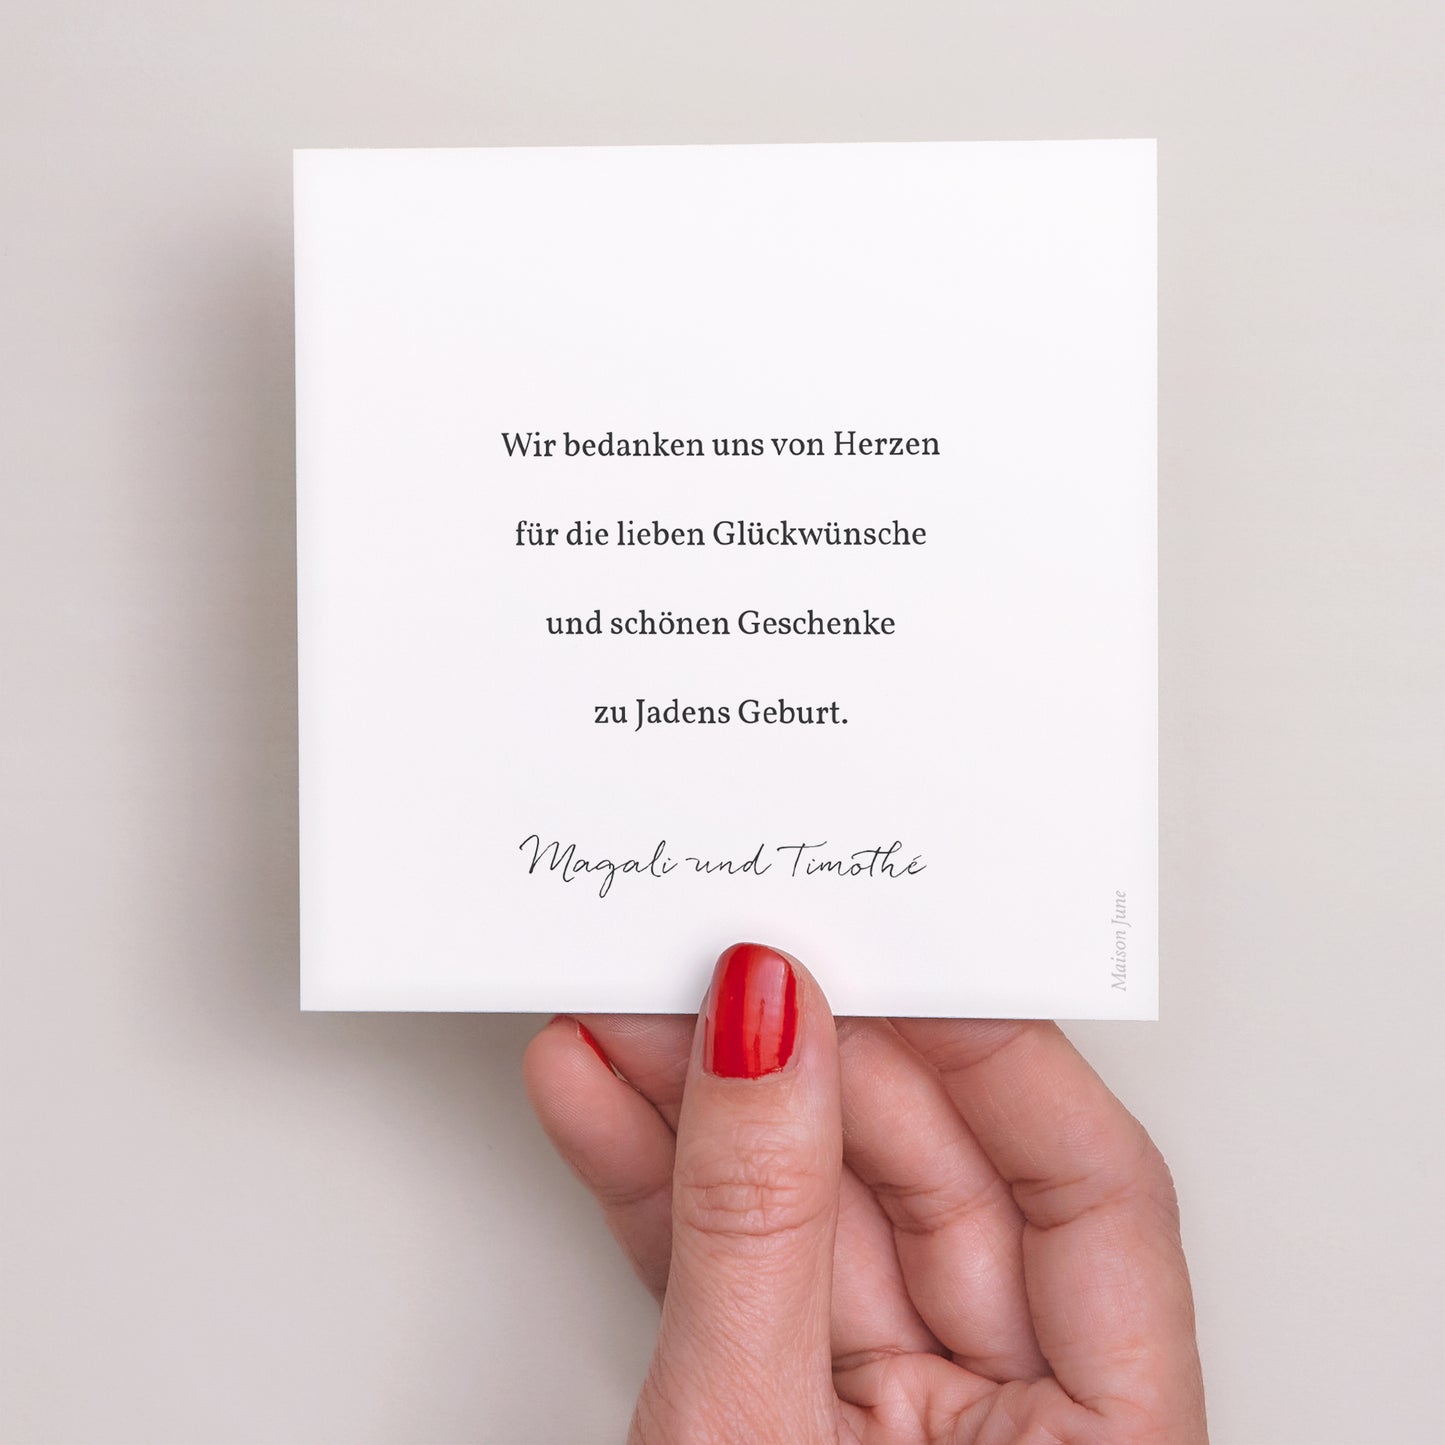 Wir bedanken uns von Herzen
für die lieben Glückwünsche
und schönen Geschenke
zu Jadens Geburt.
Magali und Timothé
Maison June